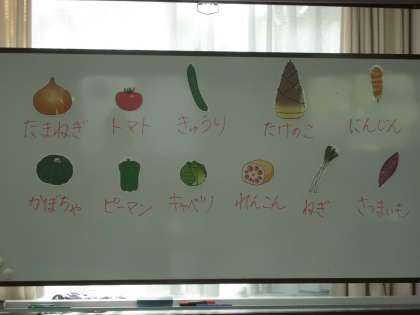 たまねぎ トマト きゅうり たけのこ にんじん
かぼちゃ ピーマン キャベツ れんこん ねぎ さつまいも